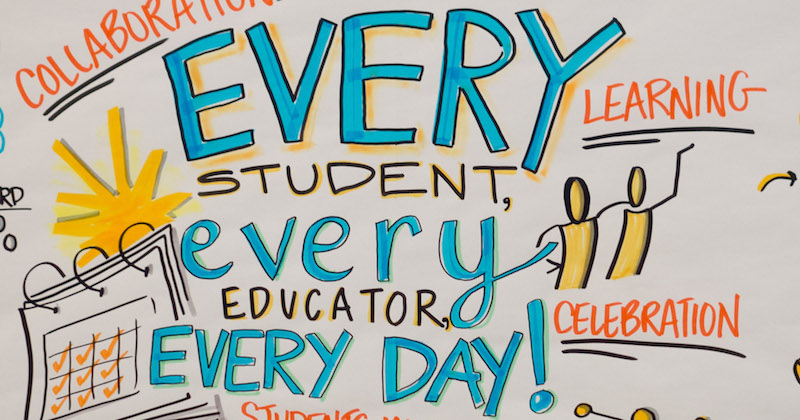 COLLABORATION
EVERY
LEARNING
STUDENT,
every
EDUCATOR,
CELEBRATION
EVERY DAY!
STUDENTS